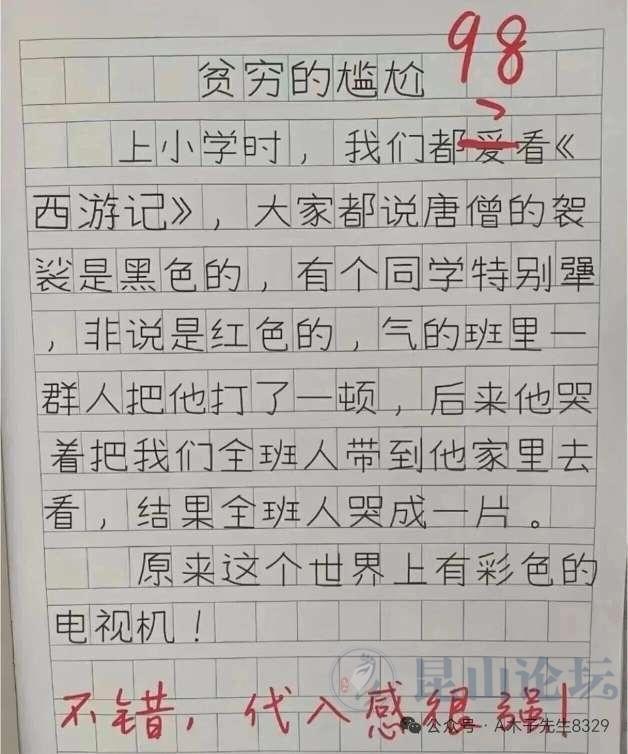 98
贫穷的尴尬
上小学时，我们都爱看《
西游记》，大家都说唐僧的袈
裟是黑色的，有个同学特别犟
，非说是红色的，气的班里一
群人把他打了一顿，后来他哭
着把我们全班人带到他家里去
看，结果全班人哭成一片。
原来这个世界上有彩色的
电视机！
昆山论坛
不错，代入感很强！
公众号·A木子先生8329